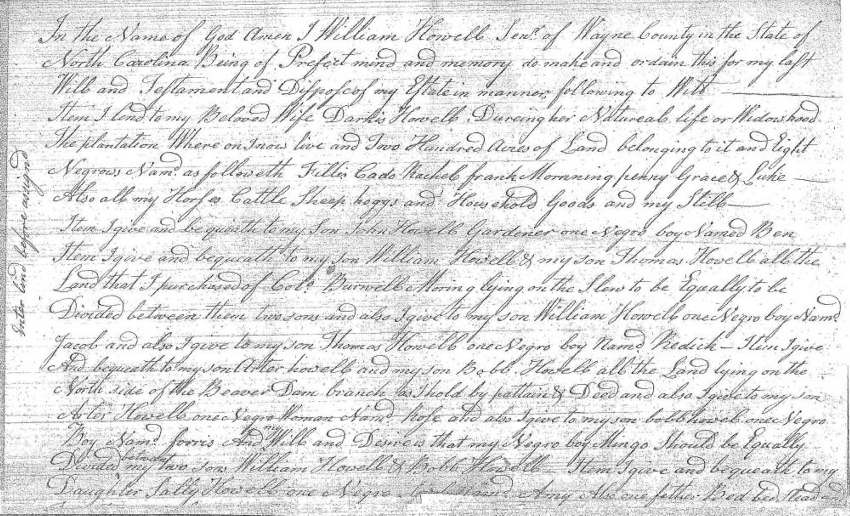 In the Name of God Amen I William Howell Senr. of Wayne County in the State of
North Carolina Being of Prefect mind and memory do make and ordain this for my last
Will and Testament and Dispose of my Estate in manner following to Witt
Item I lend to my Beloved Wife Darkis Howell Dureing her Natureal life or Widowhood
The plantation Where on I now live and Two Hundred Acres of Land belonging to it and Eight
Negrows Namd. as followeth Fillis Cado Rachel frank Mornning penny Grace & Luke
Also all my Horses Cattle Sheep hoggs and Household Goods and my Still
Item I give and bequeath to my Son John Howell Gardener one Negro boy Named Ben
Item I give and bequeath to my Son William Howell & my son Thomas Howell all the
Land that I purchased of Burwell Moring lying on the Slew to be Equally to be
Divided between them two sons and also I give to my son William Howell one Negro boy Namd.
Jacob and also I give to my son Thomas Howell one Negro boy Namd. Redick Item I give
And bequeath to my son Arter howell and my son Bobb Howell all the Land lying on the
North side of the Beaver Dam branch as I hold by pattain & Deed and also I give to my son
Arter Howell one Negro Woman Namd. Rose and also I give to my son bobb howel one Negro
Boy Namd. forris And my Will and Desire is that my Negro boy Mingo Should be Equally
Divided between my two Sons William Howell & Bobb Howell Item I give and bequeath to my
Daughter Sally Howell one Negro Namd. Amy Also one father Bed bed stead and
enter lend before assignd